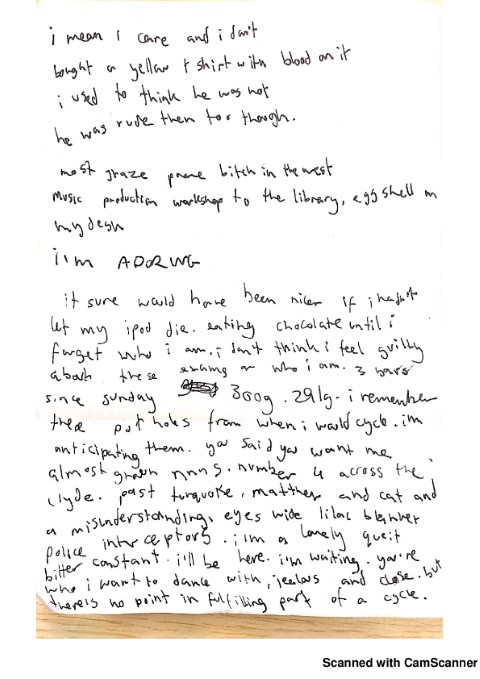 i mean i care and i don't
bought a yellow t shirt with blood on it
i used to think he was not
he was rude then too though.
most graze prone bitch in the west
music production workshop to the library, egg shell on
my desk
i'm
it sure would have been nicer if i hadn't
let my ipod die. eating chocolate until i
forget who i am. i don't think i feel guilty
about these or who i am. 3 bars
since sunday 300g. 291g. i remember
these pot holes from when i would cycle. i'm
anticipating them. you said you want me
almost grown. number 4 across the
clyde. past turquoise, matthew and cat and
a misunderstanding, eyes wide lilac blanket
police interceptors. i'm a lonely queit
bitter constant. i'll be here. i'm waiting. you're
who i want to dance with, jealous and close. but
there is no point in fulfilling part of a cycle.
Scanned with CamScanner